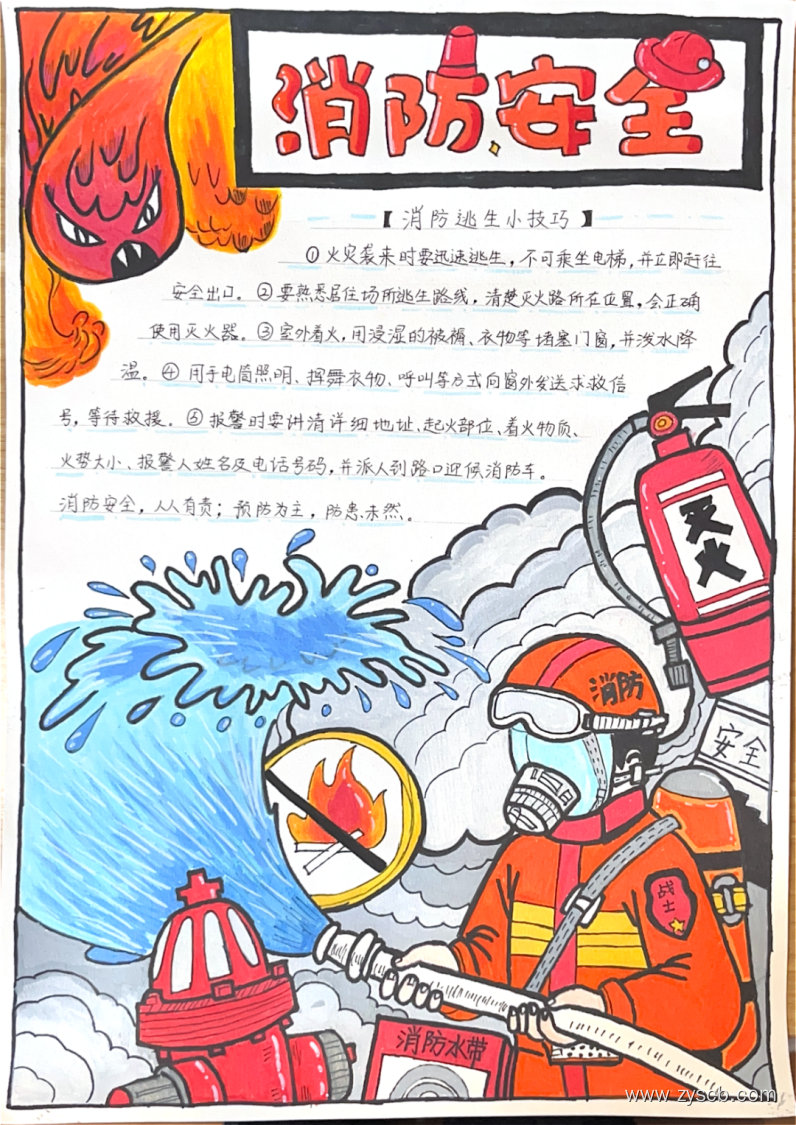 消防安全
【消防逃生小技巧】
①火灾袭来时要迅速逃生，不可乘坐电梯，并立即赶往
安全出口。②要熟悉居住场所逃生路线，清楚灭火路所在位置，会正确
使用灭火器。③室外着火，用浸湿的被褥、衣物等堵塞门窗，并泼水降
温。④用手电筒照明、挥舞衣物、呼叫等方式向窗外发送求救信
号，等待救援。⑤报警时要讲清详细地址、起火部位、着火物质、
火势大小、报警人姓名及电话号码，并派人到路口迎候消防车。
消防安全，人人有责；预防为主，防患未然。
灭火
消防
安全
战士
消防水带
www.zyscb.com